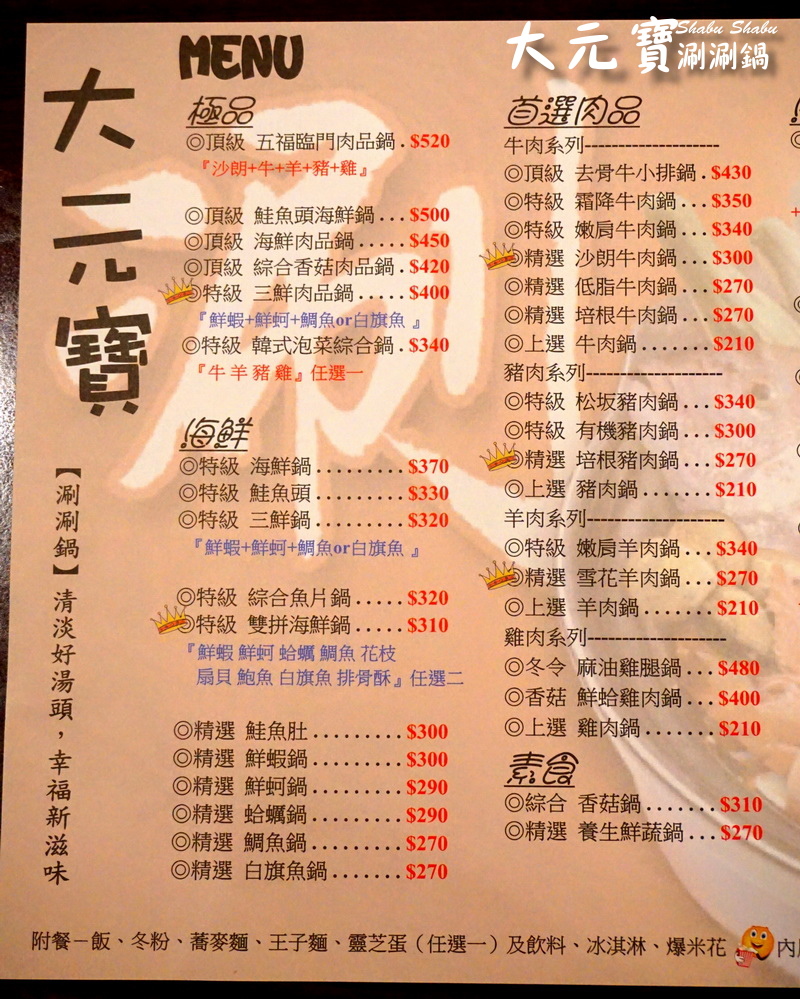 大元寶
Shabu Shabu
涮涮鍋
大元寶
【涮涮鍋】清淡好湯頭，幸福新滋味
MENU
極品
◎頂級 五福臨門肉品鍋.$520
『沙朗+牛+羊+豬+雞』
◎頂級 鮭魚頭海鮮鍋...$500
◎頂級 海鮮肉品鍋.....$450
◎頂級 綜合香菇肉品鍋.$420
◎特級 三鮮肉品鍋.....$400
『鮮蝦+鮮蚵+鯛魚or白旗魚』
◎特級 韓式泡菜綜合鍋.$340
『牛 羊 豬 雞』任選一
海鮮
◎特級 海鮮鍋.........$370
◎特級 鮭魚頭.........$330
◎特級 三鮮鍋.........$320
『鮮蝦+鮮蚵+鯛魚or白旗魚』
◎特級 綜合魚片鍋.....$320
◎特級 雙拼海鮮鍋.....$310
『鮮蝦 鮮蚵 蛤蠣 鯛魚 花枝
扇貝 鮑魚 白旗魚 排骨酥』任選二
◎精選 鮭魚肚.........$300
◎精選 鮮蝦鍋.........$300
◎精選 鮮蚵鍋.........$290
◎精選 蛤蠣鍋.........$290
◎精選 鯛魚鍋.........$270
◎精選 白旗魚鍋.......$270
首選肉品
牛肉系列--------------------
◎頂級 去骨牛小排鍋.$430
◎特級 霜降牛肉鍋...$350
◎特級 嫩肩牛肉鍋...$340
◎精選 沙朗牛肉鍋...$300
◎精選 低脂牛肉鍋...$270
◎精選 培根牛肉鍋...$270
◎上選 牛肉鍋.......$210
豬肉系列--------------------
◎特級 松坂豬肉鍋...$340
◎特級 有機豬肉鍋...$300
◎精選 培根豬肉鍋...$270
◎上選 豬肉鍋.......$210
羊肉系列--------------------
◎特級 嫩肩羊肉鍋...$340
◎精選 雪花羊肉鍋...$270
◎上選 羊肉鍋.......$210
雞肉系列--------------------
◎冬令 麻油雞腿鍋...$480
◎香菇 鮮蛤雞肉鍋...$400
◎上選 雞肉鍋.......$210
素食
◎綜合 香菇鍋.......$310
◎精選 養生鮮蔬鍋...$270
附餐－飯、冬粉、蕎麥麵、王子麵、靈芝蛋（任選一）及飲料、冰淇淋、爆米花 內